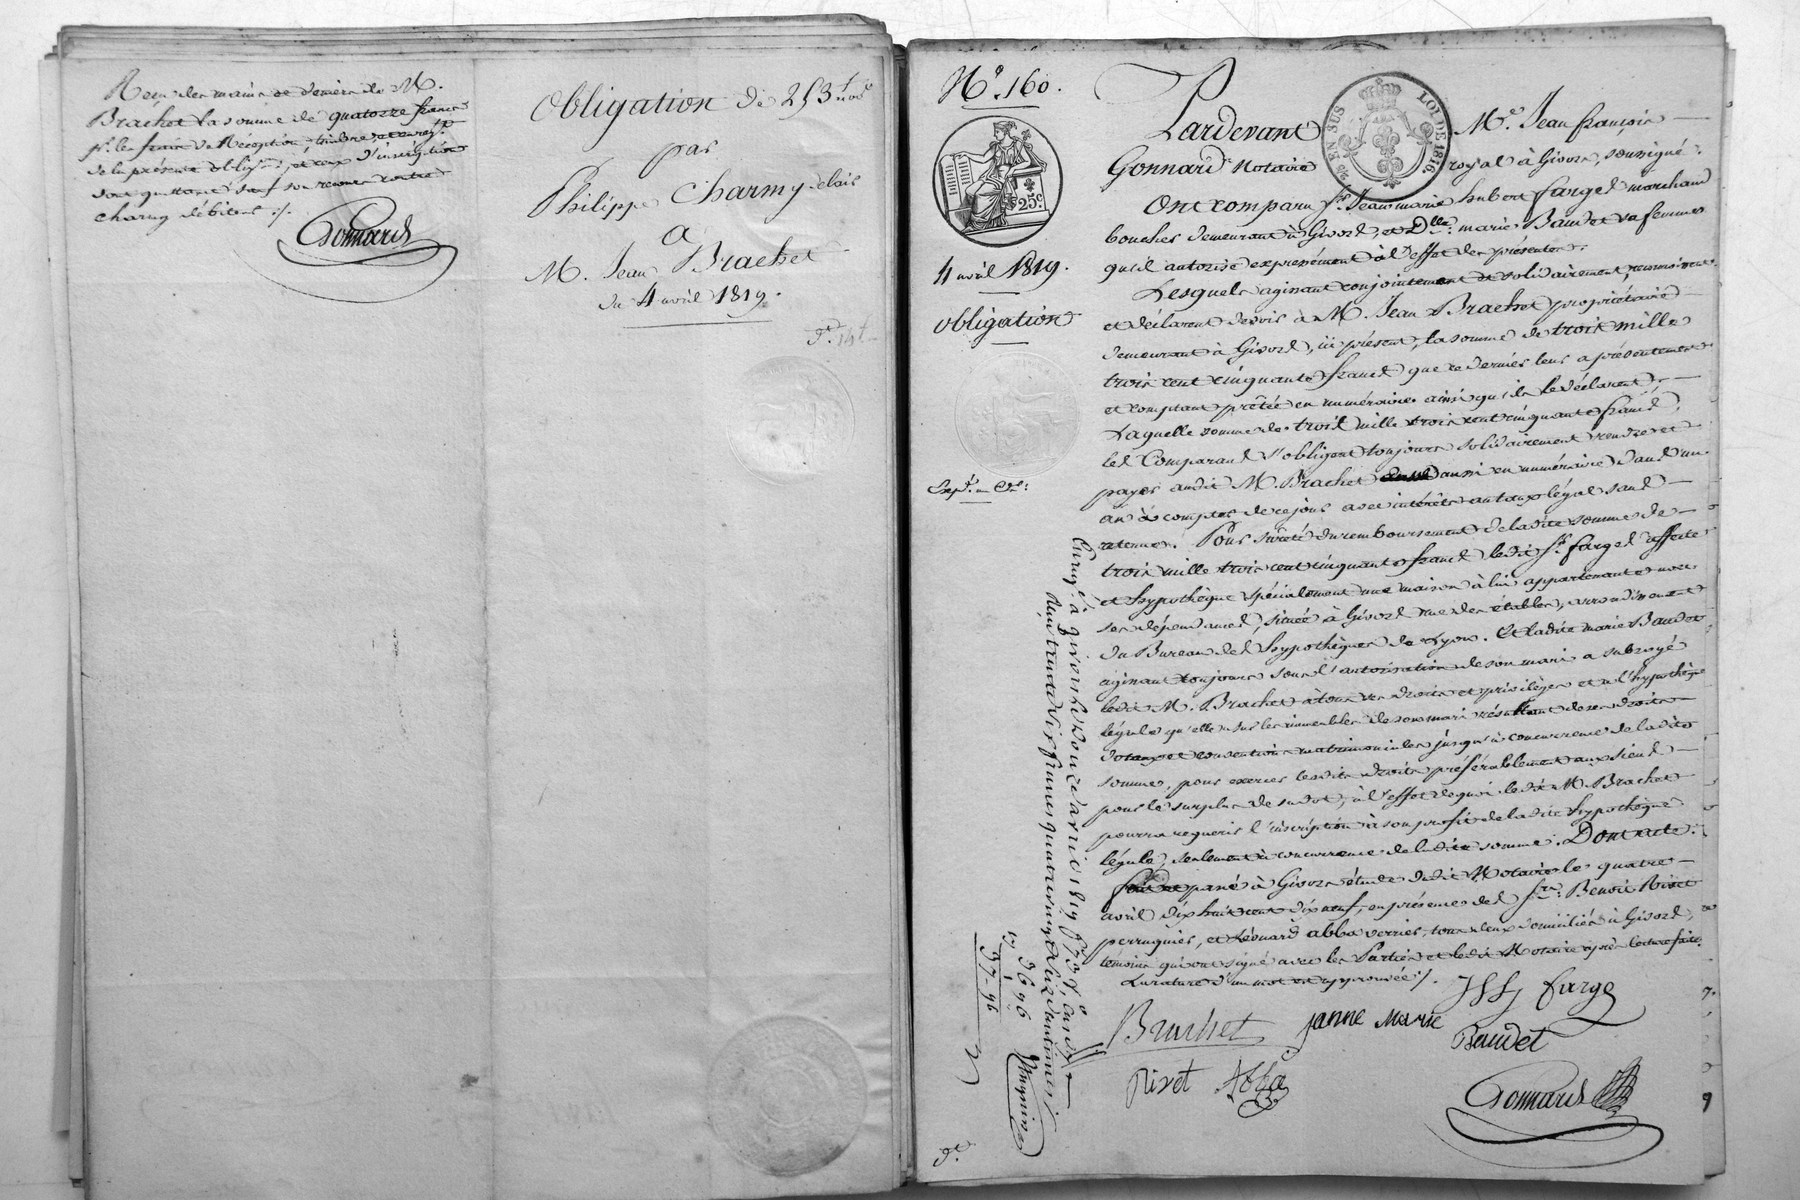 Reçu des mains et deniers de M.
Brachet la somme de quatorze francs
pr. les frais de Réception, timbre, et enregt.
de la présente oblig.on, et ceux d'inscription
dont quittance sauf son recours contre
charmy débiteur ./.
Gonnard
Obligation de 253f
par
Philippe Charmy
à
M. Jean Brachet
du 4 avril 1819.
No. 160.
25c.
4 avril 1819.
Obligation
Expd.
25 EN SUS LOI DE 1816.
Pardevant Me. Jean françois
Gonnard Notaire royal à Givors, soussigné.
Ont comparu Sr. Jean marie hubert farges marchand
boucher demeurant à Givors, et Dlle. marie Baudet sa femme
qu'il autorise expressément à l'effet des présentes.
Lesquels agissant conjointement et solidairement, reconnaissent
et déclarent devoir à M. Jean Brachet propriétaire
demeurant à Givors, ici présent, la somme de trois mille
trois cent cinquante francs que ce dernier leur a présentement
et comptant prêtée en numéraire ainsi qu'ils le déclarent,
Laquelle somme de trois mille trois cent cinquante francs,
les Comparans s'obligent toujours solidairement rendre et
payer audit M. Brachet aussi en numéraire dans un
an à compter de ce jour avec intérêts au taux légal sans
retenue. Pour sûreté du remboursement de ladite somme de
trois mille trois cent cinquante francs ledit Sr. farges affecte
et hypothèque spécialement une maison à lui appartenante avec
ses dépendances, située à Givors rue des étables, arrondissement
du Bureau des hypothèques de Lyon. Et ladite marie Baudet
agissant toujours sous l'autorisation de son mari a subrogé
ledit M. Brachet à tous ses droits et privilèges et à l'hypothèque
légale qu'elle a sur les immeubles de son mari résultant de ses droits
dotaux et conventions matrimoniales jusqu'à concurrence de ladite
somme, pour exercer lesdits droits préférablement aux siens
pour le surplus de sa dot, à l'effet de quoi ledit M. Brachet
pourra requérir l'inscription à son profit de ladite hypothèque
légale, seulement à concurrence de ladite somme. Dont acte.
fait et passé à Givors étude dudit Notaire le quatre
avril dix huit cent dix neuf, en présence des Srs. Benoit Rivet
perruquier, et Léonard abba verrier, tous deux domiciliés à Givors,
témoins qui ont signé avec les Parties et ledit Notaire après lecture faite.
La rature d'un mot est approuvée ./.
Brachet Janne Marie JHf farge
Baudet
Rivet Abba
Gonnard
Enregt. à Givors le douze avril 1819
Reçu trente six francs quatre vingt seize centimes
36 96
37 - 96